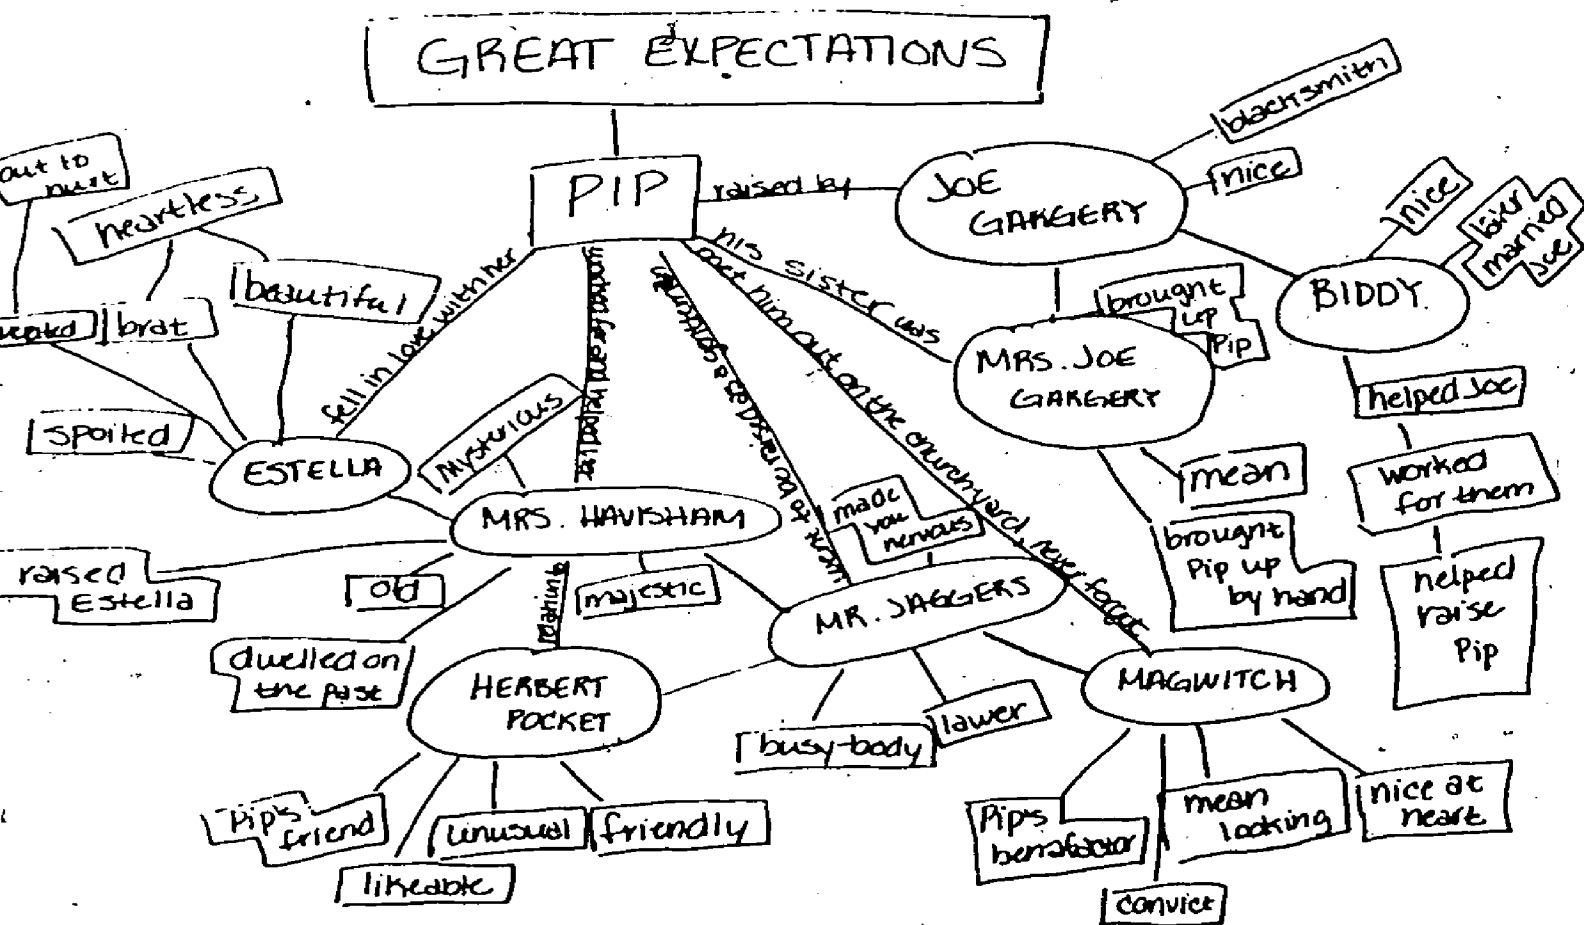 GREAT EXPECTATIONS
PIP
raised by
JOE
GARGERY
blacksmith
nice
BIDDY
nice
later
married
Joe
helped Joe
worked
for them
helped
raise
Pip
his sister was
MRS. JOE
GARGERY
brought
up
Pip
mean
brought
Pip up
by hand
met him out on the churchyard, never forgot
MAGWITCH
Pip's
benafactor
convict
mean
looking
nice at
heart
MR. JAGGERS
made
you
nervous
busy-body
lawer
MRS. HAVISHAM
Mysterious
old
majestic
raised
Estella
dwelled on
the past
HERBERT
POCKET
Pip's
friend
likeable
unusual
friendly
fell in love with her
ESTELLA
out to
hurt
heartless
beautiful
brat
spoiled